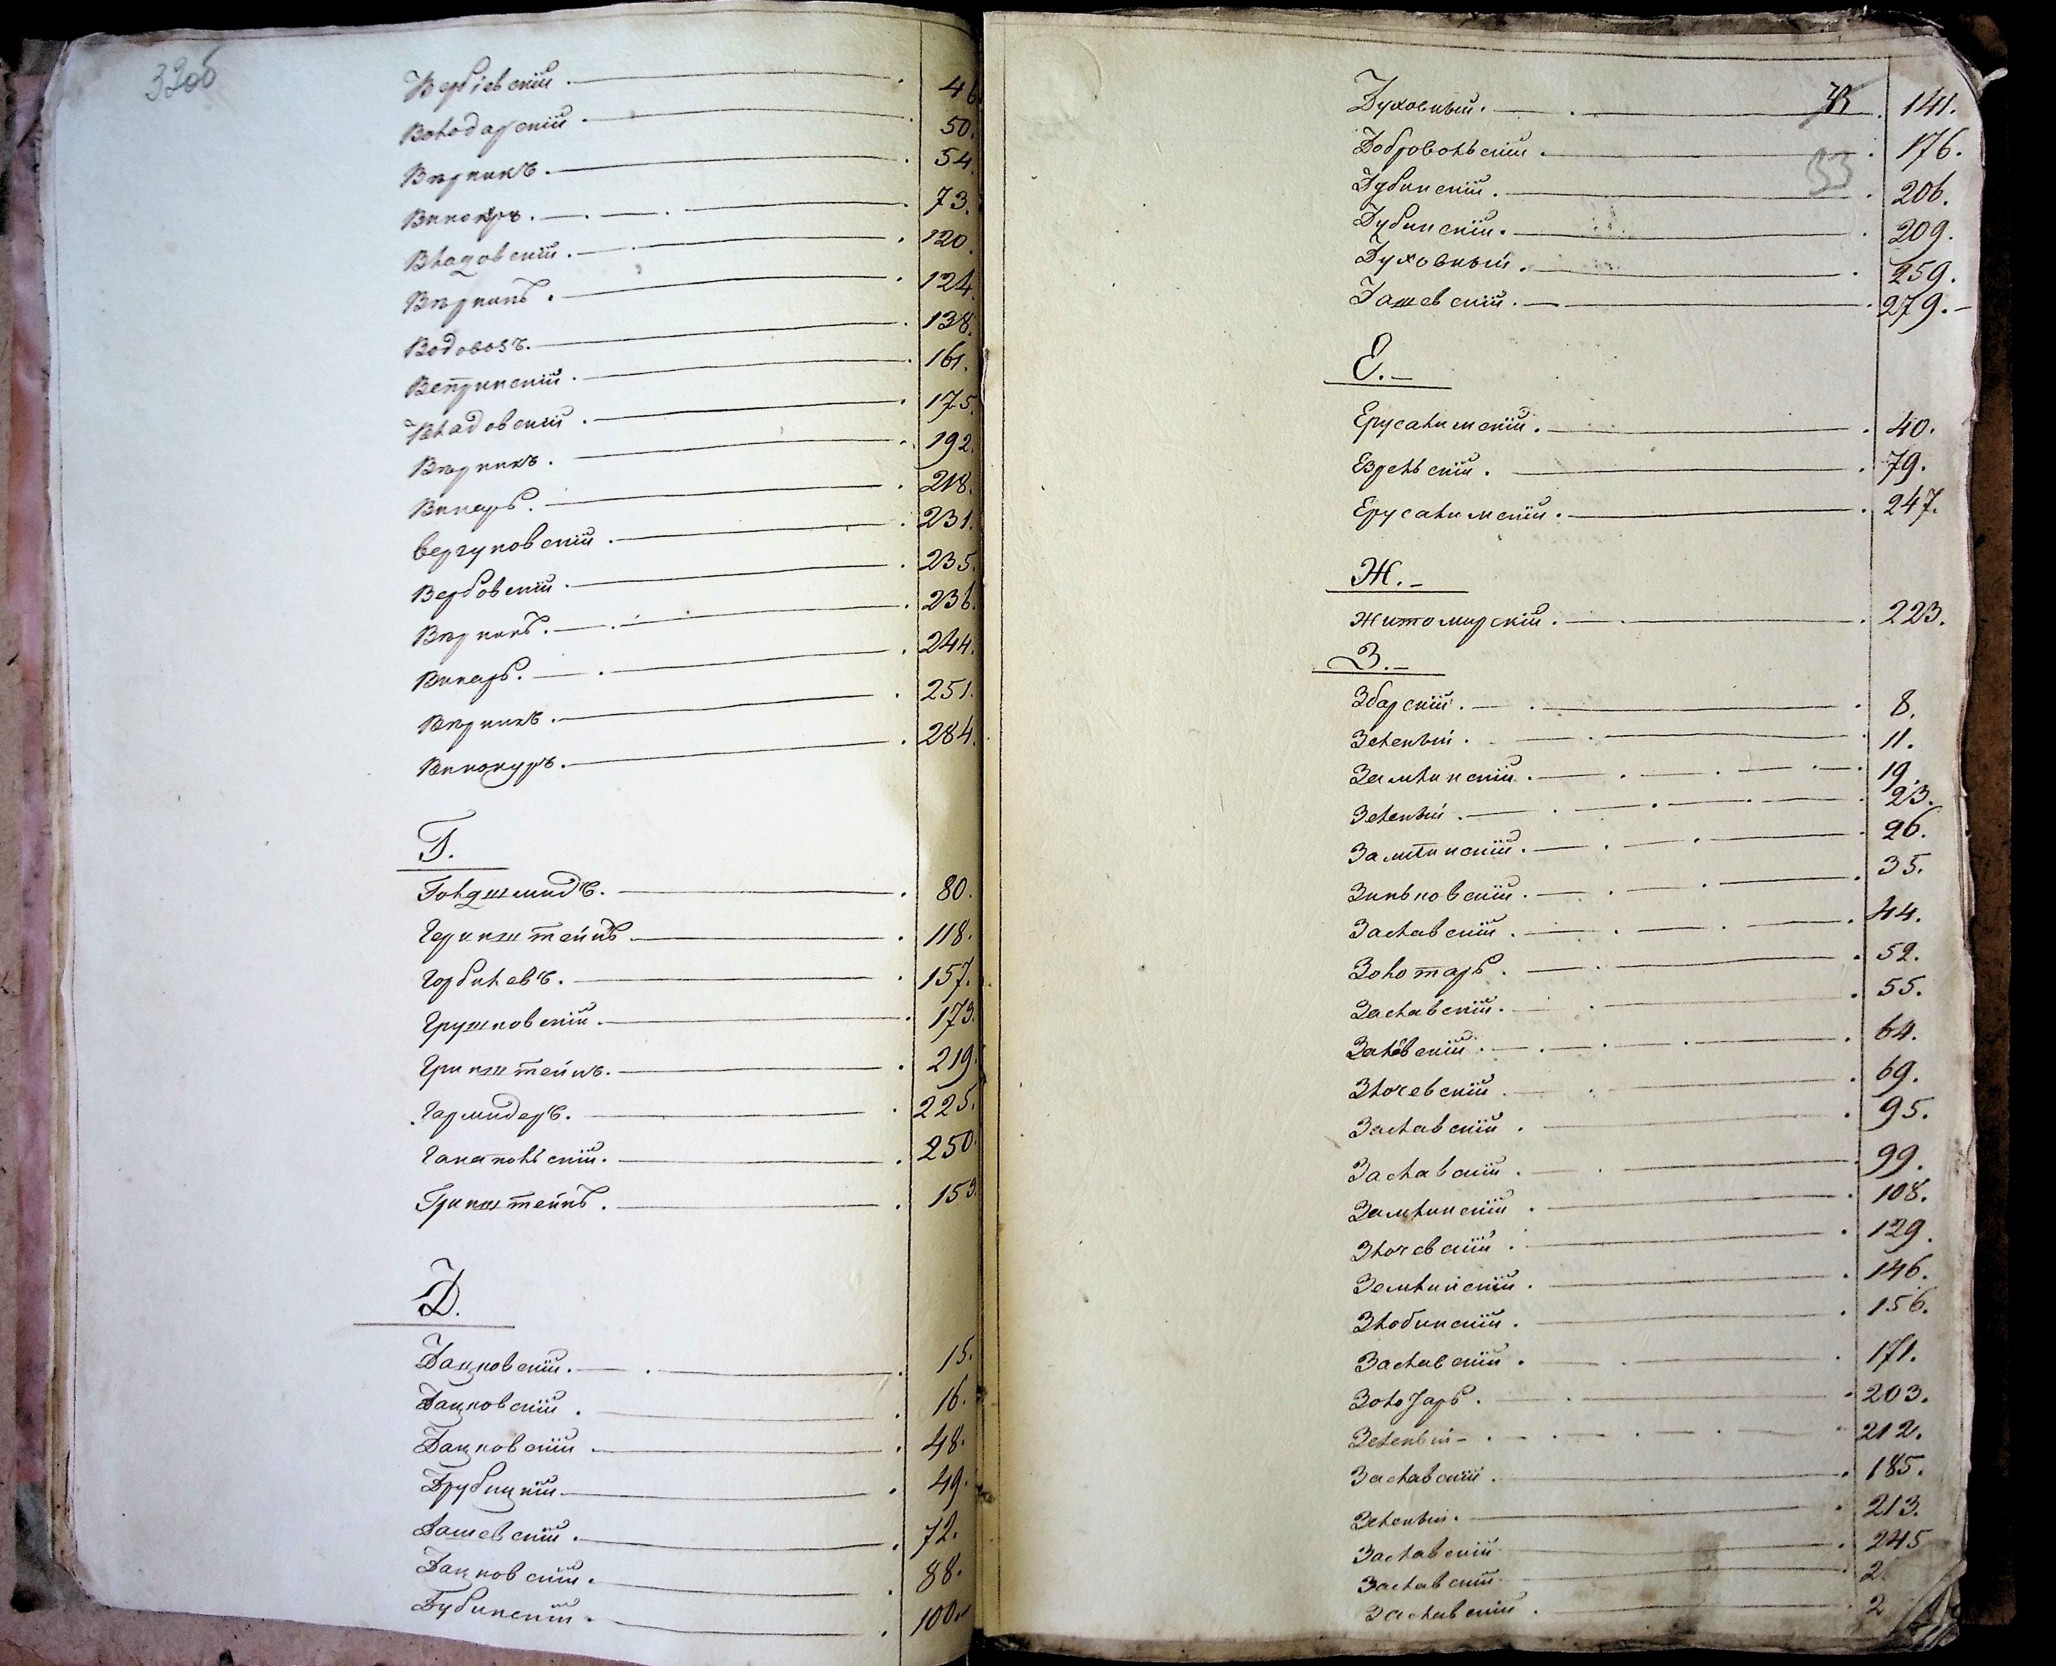 32об
Вербіевскій. 46
Володарскій. 50.
Вѣрникъ. 54.
Винокуръ. 73.
Владовскій. 120.
Вѣрникъ. 124.
Водовозъ. 138.
Ветринскій. 161.
Владовскій. 175.
Вѣрникъ. 192.
Винаръ. 218.
Вергуновскій. 231.
Вербовскій. 235.
Вѣрникъ. 236.
Винаръ. 244.
Вѣрникъ. 251.
Винокуръ. 284.
Г.
Голдшмидъ. 80.
Геринштейнъ. 118.
Горбилевъ. 157.
Грушковскій. 173.
Гринштейнъ. 219.
Гармидеръ. 225.
Ганапольскій. 250.
Гринштейнъ. 153.
Д.
Дацковскій. 15.
Дацковскій. 16.
Дацковскій. 48.
Друбицкій. 49.
Дашевскій. 72.
Дацковскій. 88.
Дубинскій. 100.
33
Духовный. 141.
Добровольскій. 176.
Дубинскій. 206.
Дубинскій. 209.
Духовный. 259.
Дашевскій. 279.
Е.
Ерусалимскій. 40.
Езрельскій. 79.
Ерусалимскій. 247.
Ж.
Житомирскій. 223.
З.
Збарскій. 8.
Зеленый. 11.
Замлинскій. 19.
Зеленый. 23.
Замлинскій. 26.
Зиньковскій. 35.
Заславскій. 44.
Золотаръ. 52.
Заславскій. 55.
Залевскій. 64.
Злочевскій. 69.
Заславскій. 95.
Заславскій. 99.
Замлинскій. 108.
Злочевскій. 129.
Землинскій. 146.
Злобинскій. 156.
Заславскій. 171.
Золотаръ. 203.
Зеленый. 212.
Заславскій. 185.
Зеленый. 213.
Заславскій. 245
Заславскій. 2
Заславскій. 2